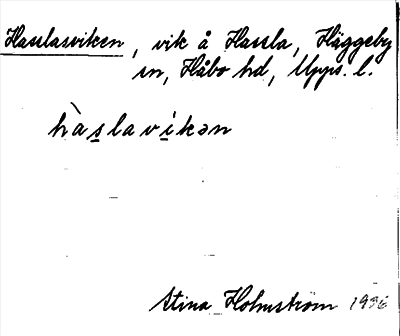 Hasslasviken, vik å Hassla, Häggeby
sn, Håbo hd, Upps. l.
hàslavikən
Stina Holmström 1936